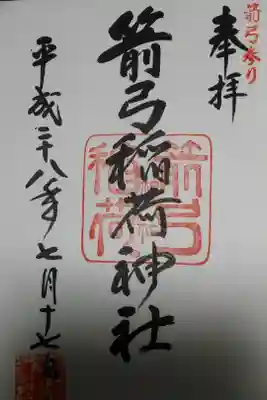 箭弓参り
奉拝
箭弓稲荷神社
箭弓稲荷
平成二十八年七月十七日